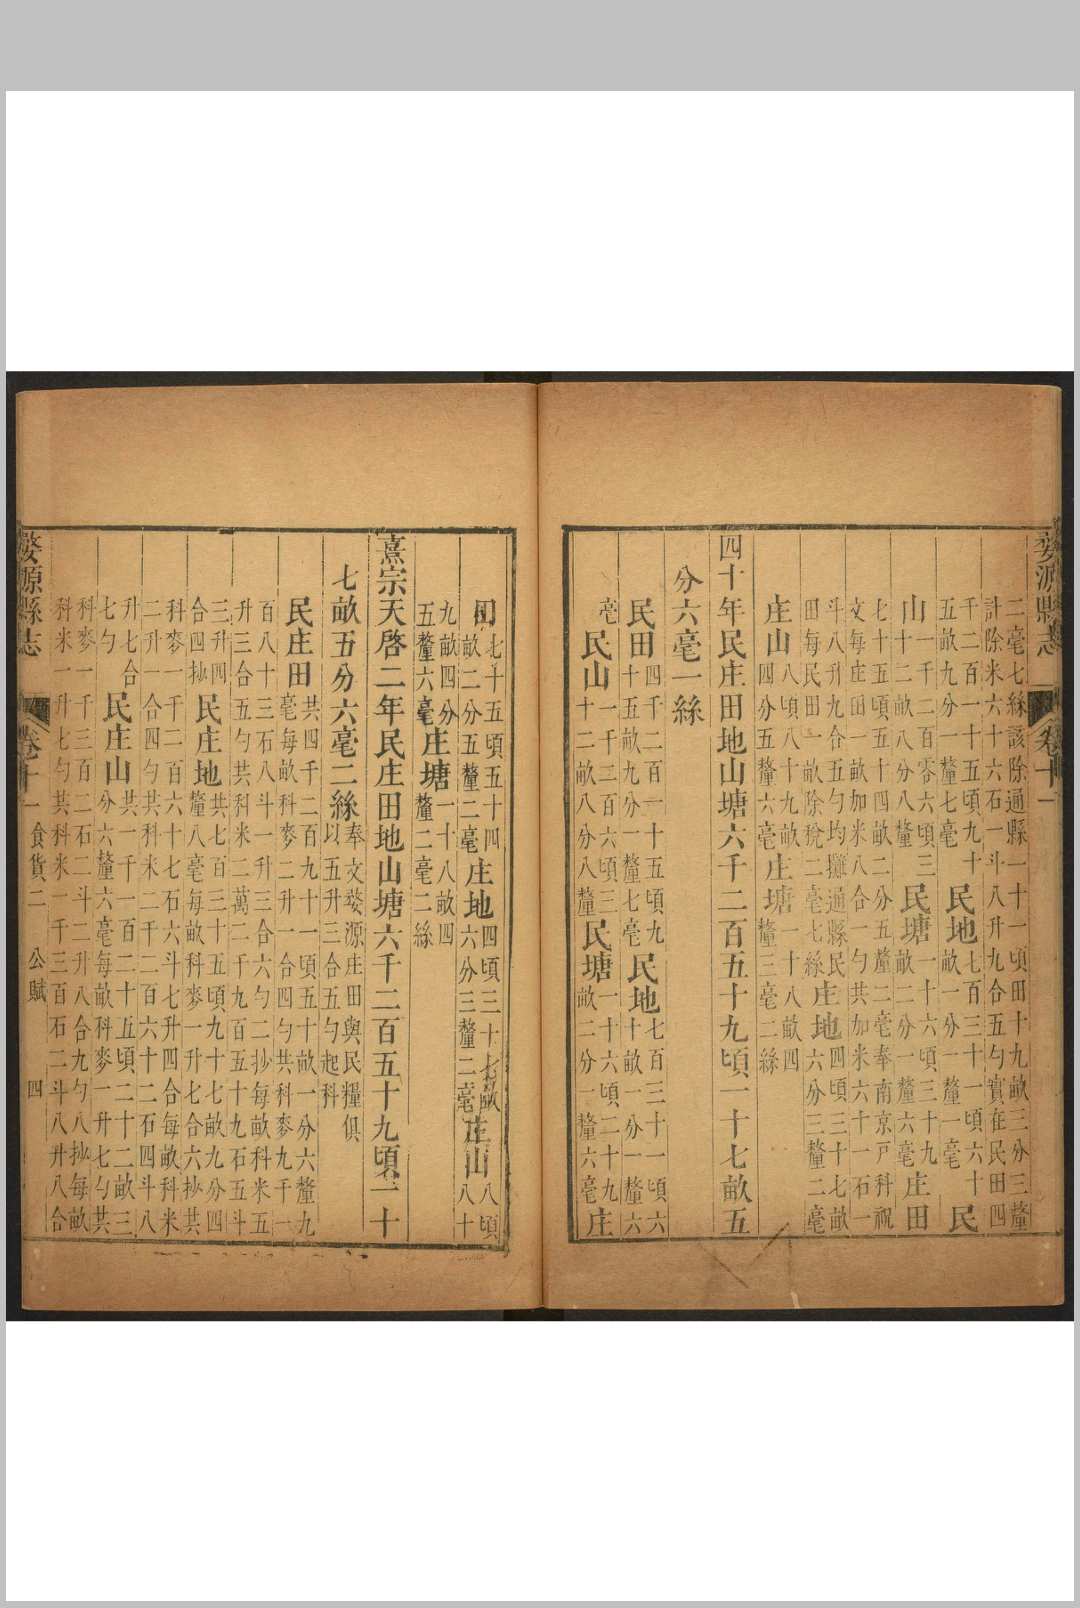 婺源縣志
卷十一
二毫七絲該除通縣一十一頃田十九畝三分三釐
計除米六十六石一斗八升九合五勺實在民田四
千二百一十五頃九十
五畝九分一釐七毫
民地
七百三十一頃六十
畝一分一釐一毫
民
山
一千二百零六頃三
十二畝八分八釐
民塘
一十六頃三十九
畝二分一釐六毫
庄田
七十五頃五十四畝二分五釐二毫奉南京戸科祝
文每庄田一畝加米八合一勺共加米六十一石一
斗八升九合五勺均攤通縣民
田每民田一畝除稅二毫七絲
庄地
四頃三十七畝
六分三釐二毫
庄山
八頃八十九畝
四分五釐六毫
庄塘
一十八畝四
釐三毫二絲
四十年民庄田地山塘六千二百五十九頃一十七畝五
分六毫一絲
民田
四千二百一十五頃九
十五畝九分一釐七毫
民地
七百三十一頃六
十畝一分一釐六
毫
民山
一千三百六頃三
十二畝八分八釐
民塘
一十六頃二十九
畝二分一釐六毫
庄
田
七十五頃五十四
畝二分五釐二毫
庄地
四頃三十七畝
六分三釐二毫
庄山
八頃八十
九畝四分
五釐六毫
庄塘
一十八畝四
釐二毫二絲
熹宗天啓二年民庄田地山塘六千二百五十九頃一十
七畝五分六毫二絲
奉文婺源庄田與民糧俱
以五升三合五勺起科
民庄田
共四千二百九十一頃五十畝一分六釐九
毫每畝科麥二升一合四勺共科麥九千一
百八十三石八斗一升三合六勺二抄每畝科米五
升三合五勺共科米二萬二千九百五十九石五斗
三升四
合四抄
民庄地
共七百三十五頃九十七畝九分四
釐八毫每畝科麥一升七合六抄共
科麥一千二百六十七石六斗七升四合每畝科米
二升一合四勺共科米二千二百六十二石四斗八
升七合
七勺
民庄山
共一千一百二十五頃二十二畝三
分六釐六毫每畝科麥一升七勺共
科麥一千三百二石二斗二升八合九勺八抄每畝
科米一升七勺共科米一千三百石二斗八升八合
婺源縣志
卷十一 食貨二 公賦 四